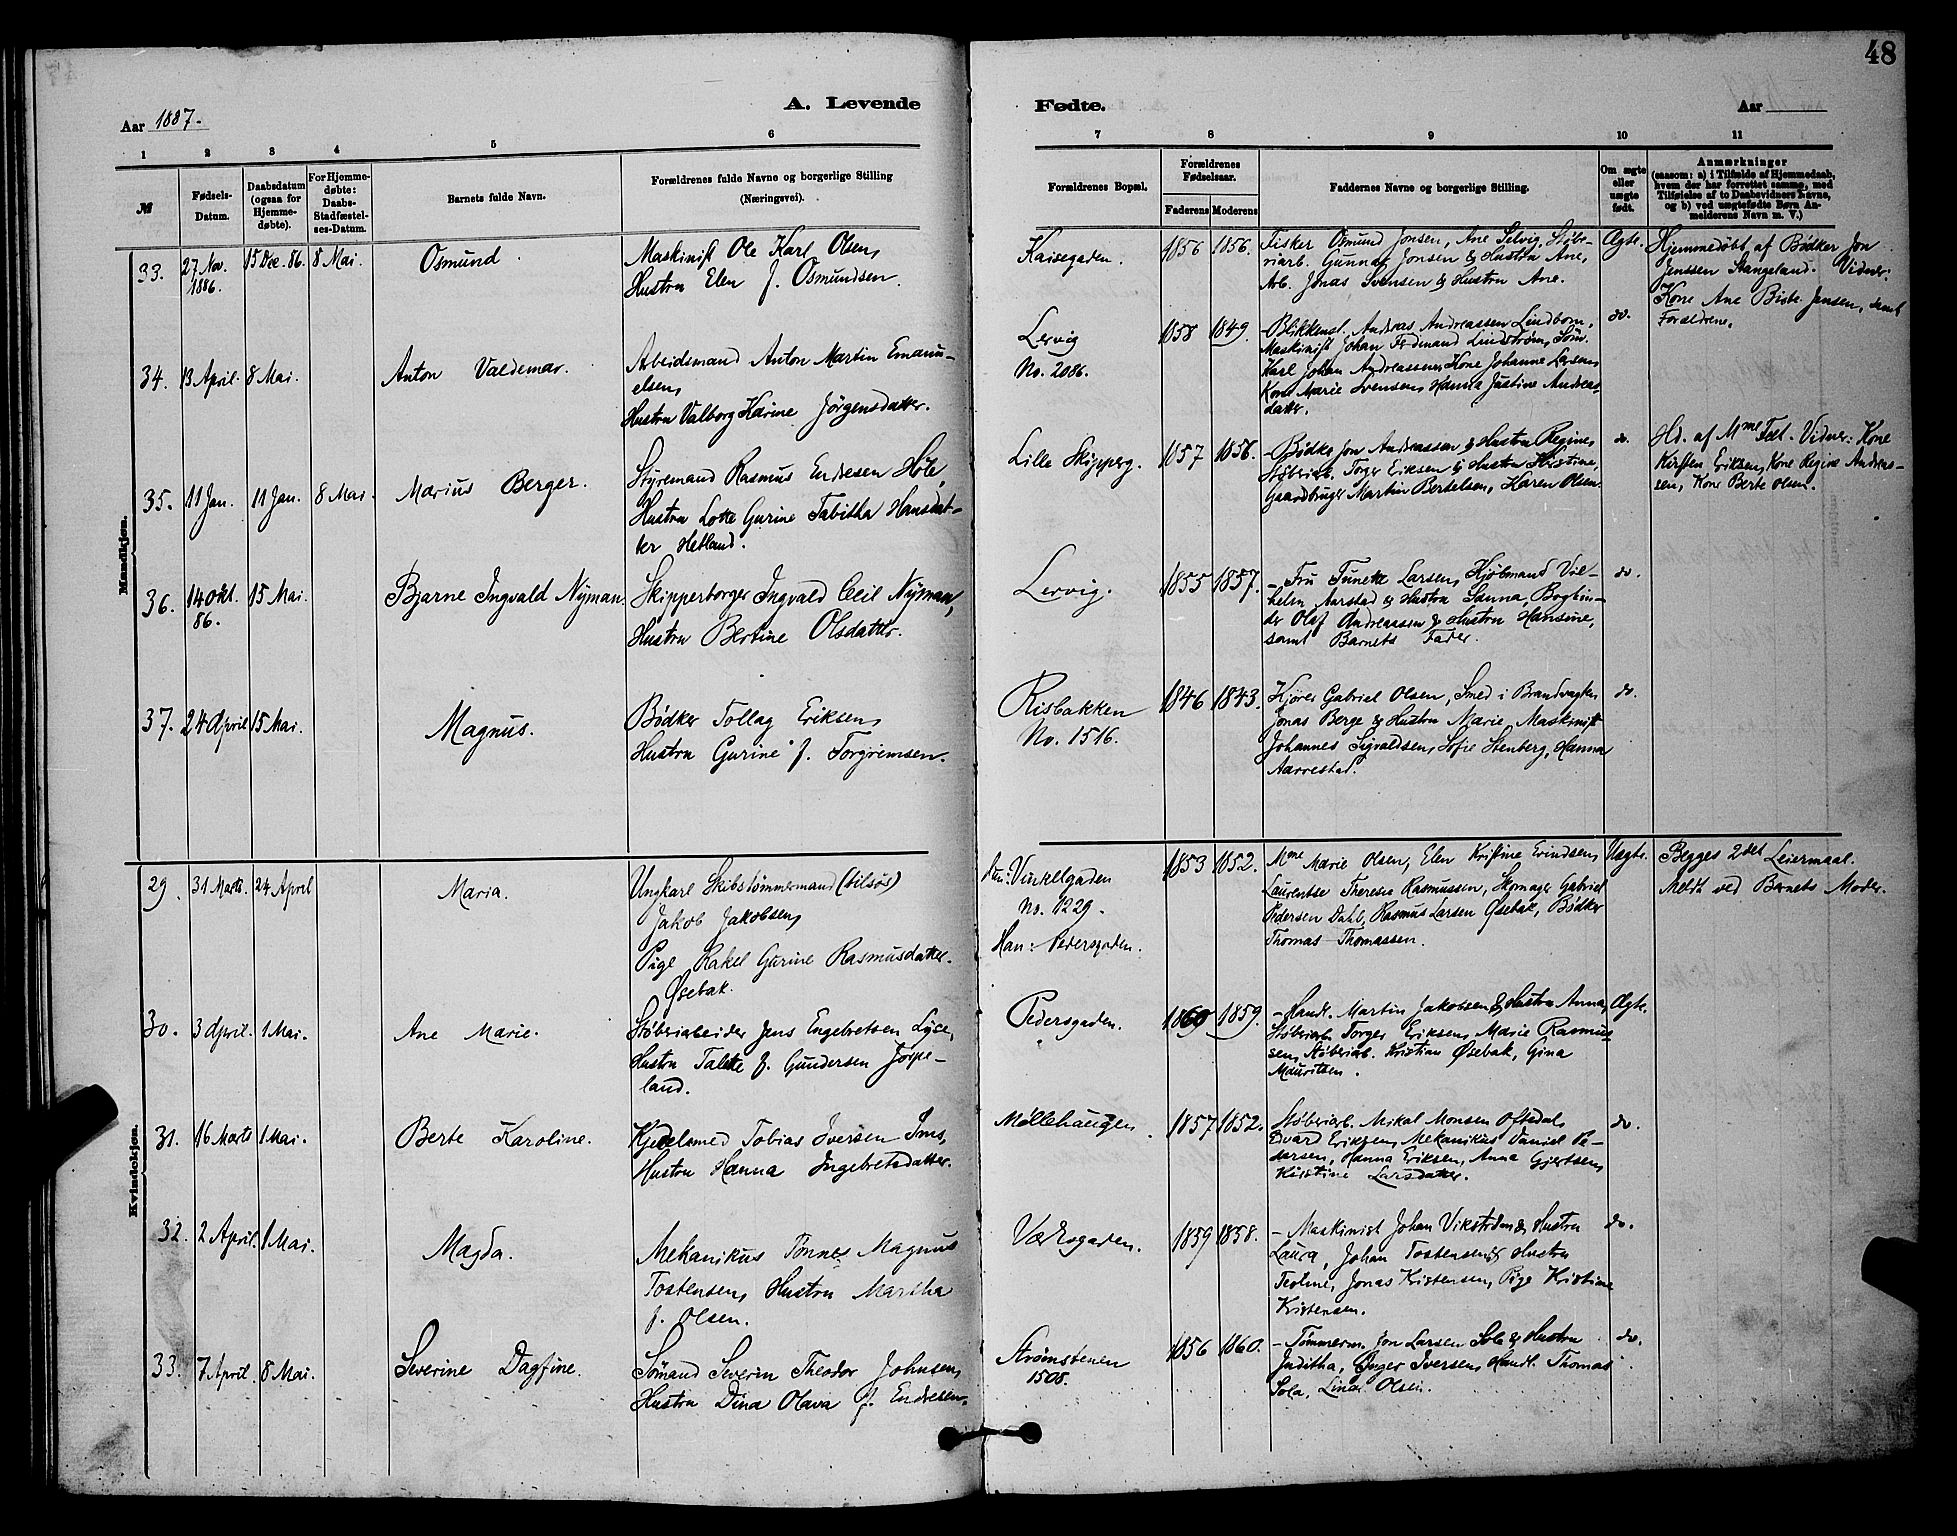 48
A. Levende Fødte.
Aar 1887.
Aar
1 2 3 4 5 6 7 8 9 10 11
№
Fødsels-
Datum.
Daabsdatum
(ogsaa for
Hjemme-
døbte).
For Hjemme-
døbte:
Daabs-
Stadfæstel-
ses-Datum.
Barnets fulde Navn.
Forældrenes fulde Navne og borgerlige Stilling
(Næringsvei).
Forældrenes Bopæl.
Forældrenes
Fødselsaar.
Faderens Moderens
Faddernes Navne og borgerlige Stilling.
Om ægte
eller
uægte
født.
Anmærkninger
(saasom: a) i Tilfælde af Hjemmedaab,
hvem der har forrettet samme, med
Tilføielse af to Daabsvidners Navne,
og b) ved uægtefødte Børn An-
melderens Navn m. V.)
Mandkjøn.
33. 27 Nov. 1886. 15 Dec. 86. 8 Mai. Osmund.
Maskinist Ole Karl Olsen,
Hustru Elen f. Osmundsen.
Kaisegaden. 1856 1856.
Fisker Osmund Jonsen, Ane Selvig, Støbe-
riarb. Gunnar Jonsen & Hustru Ane,
Arb. Jonas Svensen & Hustru Ane.
Ægte.
Hjemmedøbt af Bødker Jon
Jenssen Stangeland. Vidner:
Kone Ane Birte Jensen, samt
Forældrene.
34. 13 April. 8 Mai. Anton Valdemar.
Arbeidsmand Anton Martin Emanu-
elsen,
Hustru Valborg Karine Jörgensdatter.
Lervig
No. 2086.
1858 1849.
Blikkensl. Andreas Andreassen Lindborn,
Maskinist Johan Ferdinand Lindström, Söm.
Karl Johan Andreassen, Kone Johanne Larsen,
Kone Marie Svensen, Hanna Justine Andreas-
datter.
do.
35. 11 Jan. 11 Jan. 8 Mai. Marius Berger.
Styremand Rasmus Endresen Høle,
Hustru Lotte Gurine Tabitha Hansdat-
ter Hetland.
Lille Skipperg. 1857 1856.
Bødker Jon Andreassen & Hustru Regine,
Støberiarb. Torger Eriksen & Hustru Kristine,
Gaardbruger Martin Bertelsen, Karen Olsen.
do.
Hd. af Mme Feet. Vidner: Kone
Kirsten Eriksen, Kone Regine Andreas-
sen, Kone Berte Olsen.
36. 14 Okt. 86. 15 Mai. Bjarne Ingvald Nyman.
Skipperborger Ingvald Cecil Nyman,
Hustru Bertine Olsdatter.
Lervig. 1855 1857.
Fru Tunette Larsen, Kjøbmand Vil-
helm Aarstad & Hustru Sanna, Bogbin-
der Olaf Andreassen & Hustru Hansine,
samt Barnets Fader.
do.
37. 24 April 15 Mai. Magnus.
Bødker Tollag Eriksen,
Hustru Gurine f. Torgrimsen.
Risbakken
No. 1516.
1846 1843.
Kjører Gabriel Olsen, Smed i Brandvagten
Jonas Berge & Hustru Marie, Maskinist
Johannes Sigvaldsen, Sofie Stenberg, Hanna
Aarrestad.
do.
Kvindekjøn.
29. 31 Marts. 24 April Maria.
Ungkarl Skibstømmermand (tilsøs)
Jakob Jakobsen,
Pige Rakel Gurine Rasmusdatter
Øsebak.
Hun: Vinkelgaden
No. 1229.
Han: Pedersgaden.
1853 1852.
Mme Marie Olsen, Elen Kristine Erindsen,
Laurentse Therese Rasmussen, Skomager Gabriel
Pedersen Dahl, Rasmus Larsen Øsebak, Bødker
Thomas Thomassen.
Uægte.
Begges 2det Leiermaal.
Meldt ved Barnets Moder.
30. 3 April. 1 Mai. Ane Marie.
Støberiarbeider Jens Engebretsen Lyse,
Hustru Talette f. Gundersen Jørpe-
land.
Pedersgaden. 1860 1859.
Handl. Martin Jakobsen & Hustru Anna,
Støberiarb. Torger Eriksen, Marie Rasmus-
sen, Støberiarb. Kristian Øsebak, Gina
Mauritsen.
Ægte.
31. 16 Marts 1 Mai. Berte Karoline.
Kjedelsmed Tobias Iversen Ims,
Hustru Hanna Ingebretsdatter.
Møllehaugen. 1857 1852.
Støberiarb. Mikal Monsen Oftedal,
Edvard Eriksen, Mekanikus Daniel Pe-
dersen, Hanna Eriksen, Anna Gjertsen,
Kirstine Larsdatter.
do.
32. 2 April. 1 Mai. Magda.
Mekanikus Tønnes Magnus
Tostensen, Hustru Martha
f. Olsen.
Værksgaden. 1859 1858.
Maskinist Johan Vikström & Hustru
Laura, Johan Tostensen & Hustru
Teoline, Jonas Kristensen, Pige Kristine
Kristensen.
do.
33. 7 April. 8 Mai. Severine Dagfine.
Sømand Severin Theodor Johnsen,
Hustru Dina Olava f. Endresen.
Strömstenen
1508.
1856 1860.
Tömmerm. Jon Larsen Sola & Hustru
Juditha, Inger Iversen, Handl. Thomas
Sola, Lina Olsen.
do.